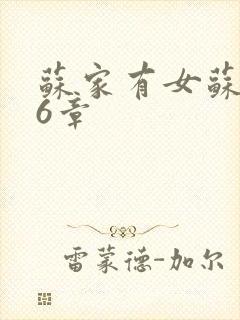 蘇家有女蘇
6章
雷蒙德-加尔